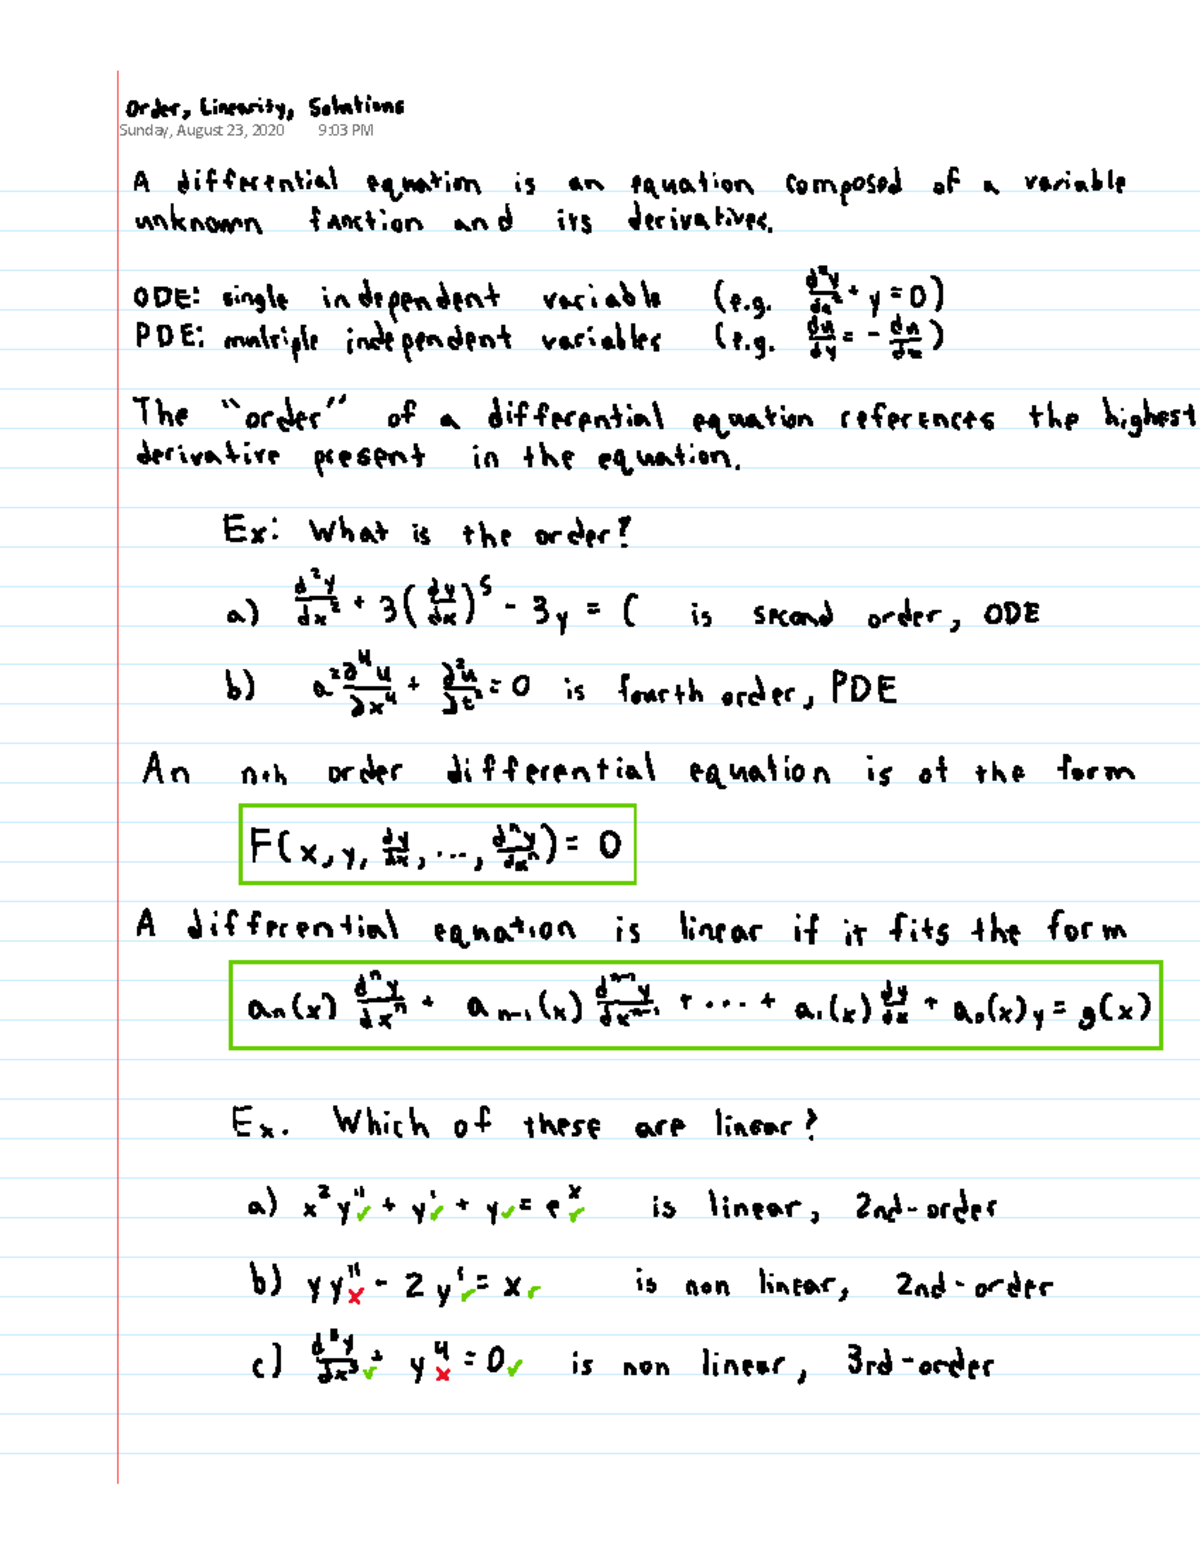 Order, Linearity, Solutions
Sunday, August 23, 2020 9:03 PM
A differential equation is an equation composed of a variable
unknown function and its derivatives.
ODE: single independent variable (e.g. d²y/dx² + y = 0)
PDE: multiple independent variables (e.g. du/dy = - du/dx)
The "order" of a differential equation references the highest
derivative present in the equation.
Ex: What is the order?
a) d²y/dx² + 3(dy/dx)⁵ - 3y = ( is second order, ODE
b) a²∂⁴u/∂x⁴ + ∂²u/∂t² = 0 is fourth order, PDE
An nth order differential equation is of the form
F(x, y, dy/dx, ..., dⁿy/dxⁿ) = 0
A differential equation is linear if it fits the form
aₙ(x) dⁿy/dxⁿ + aₙ₋₁(x) dⁿ⁻¹y/dxⁿ⁻¹ + ... + a₁(x) dy/dx + a₀(x)y = g(x)
Ex. Which of these are linear?
a) x²y'' ✓ + y' ✓ + y ✓ = eˣ ✓ is linear, 2nd-order
b) yy'' x - 2y' ✓ = x ✓ is non linear, 2nd-order
c) d³y/dx³ ✓ + y⁴ x = 0 ✓ is non linear, 3rd-order